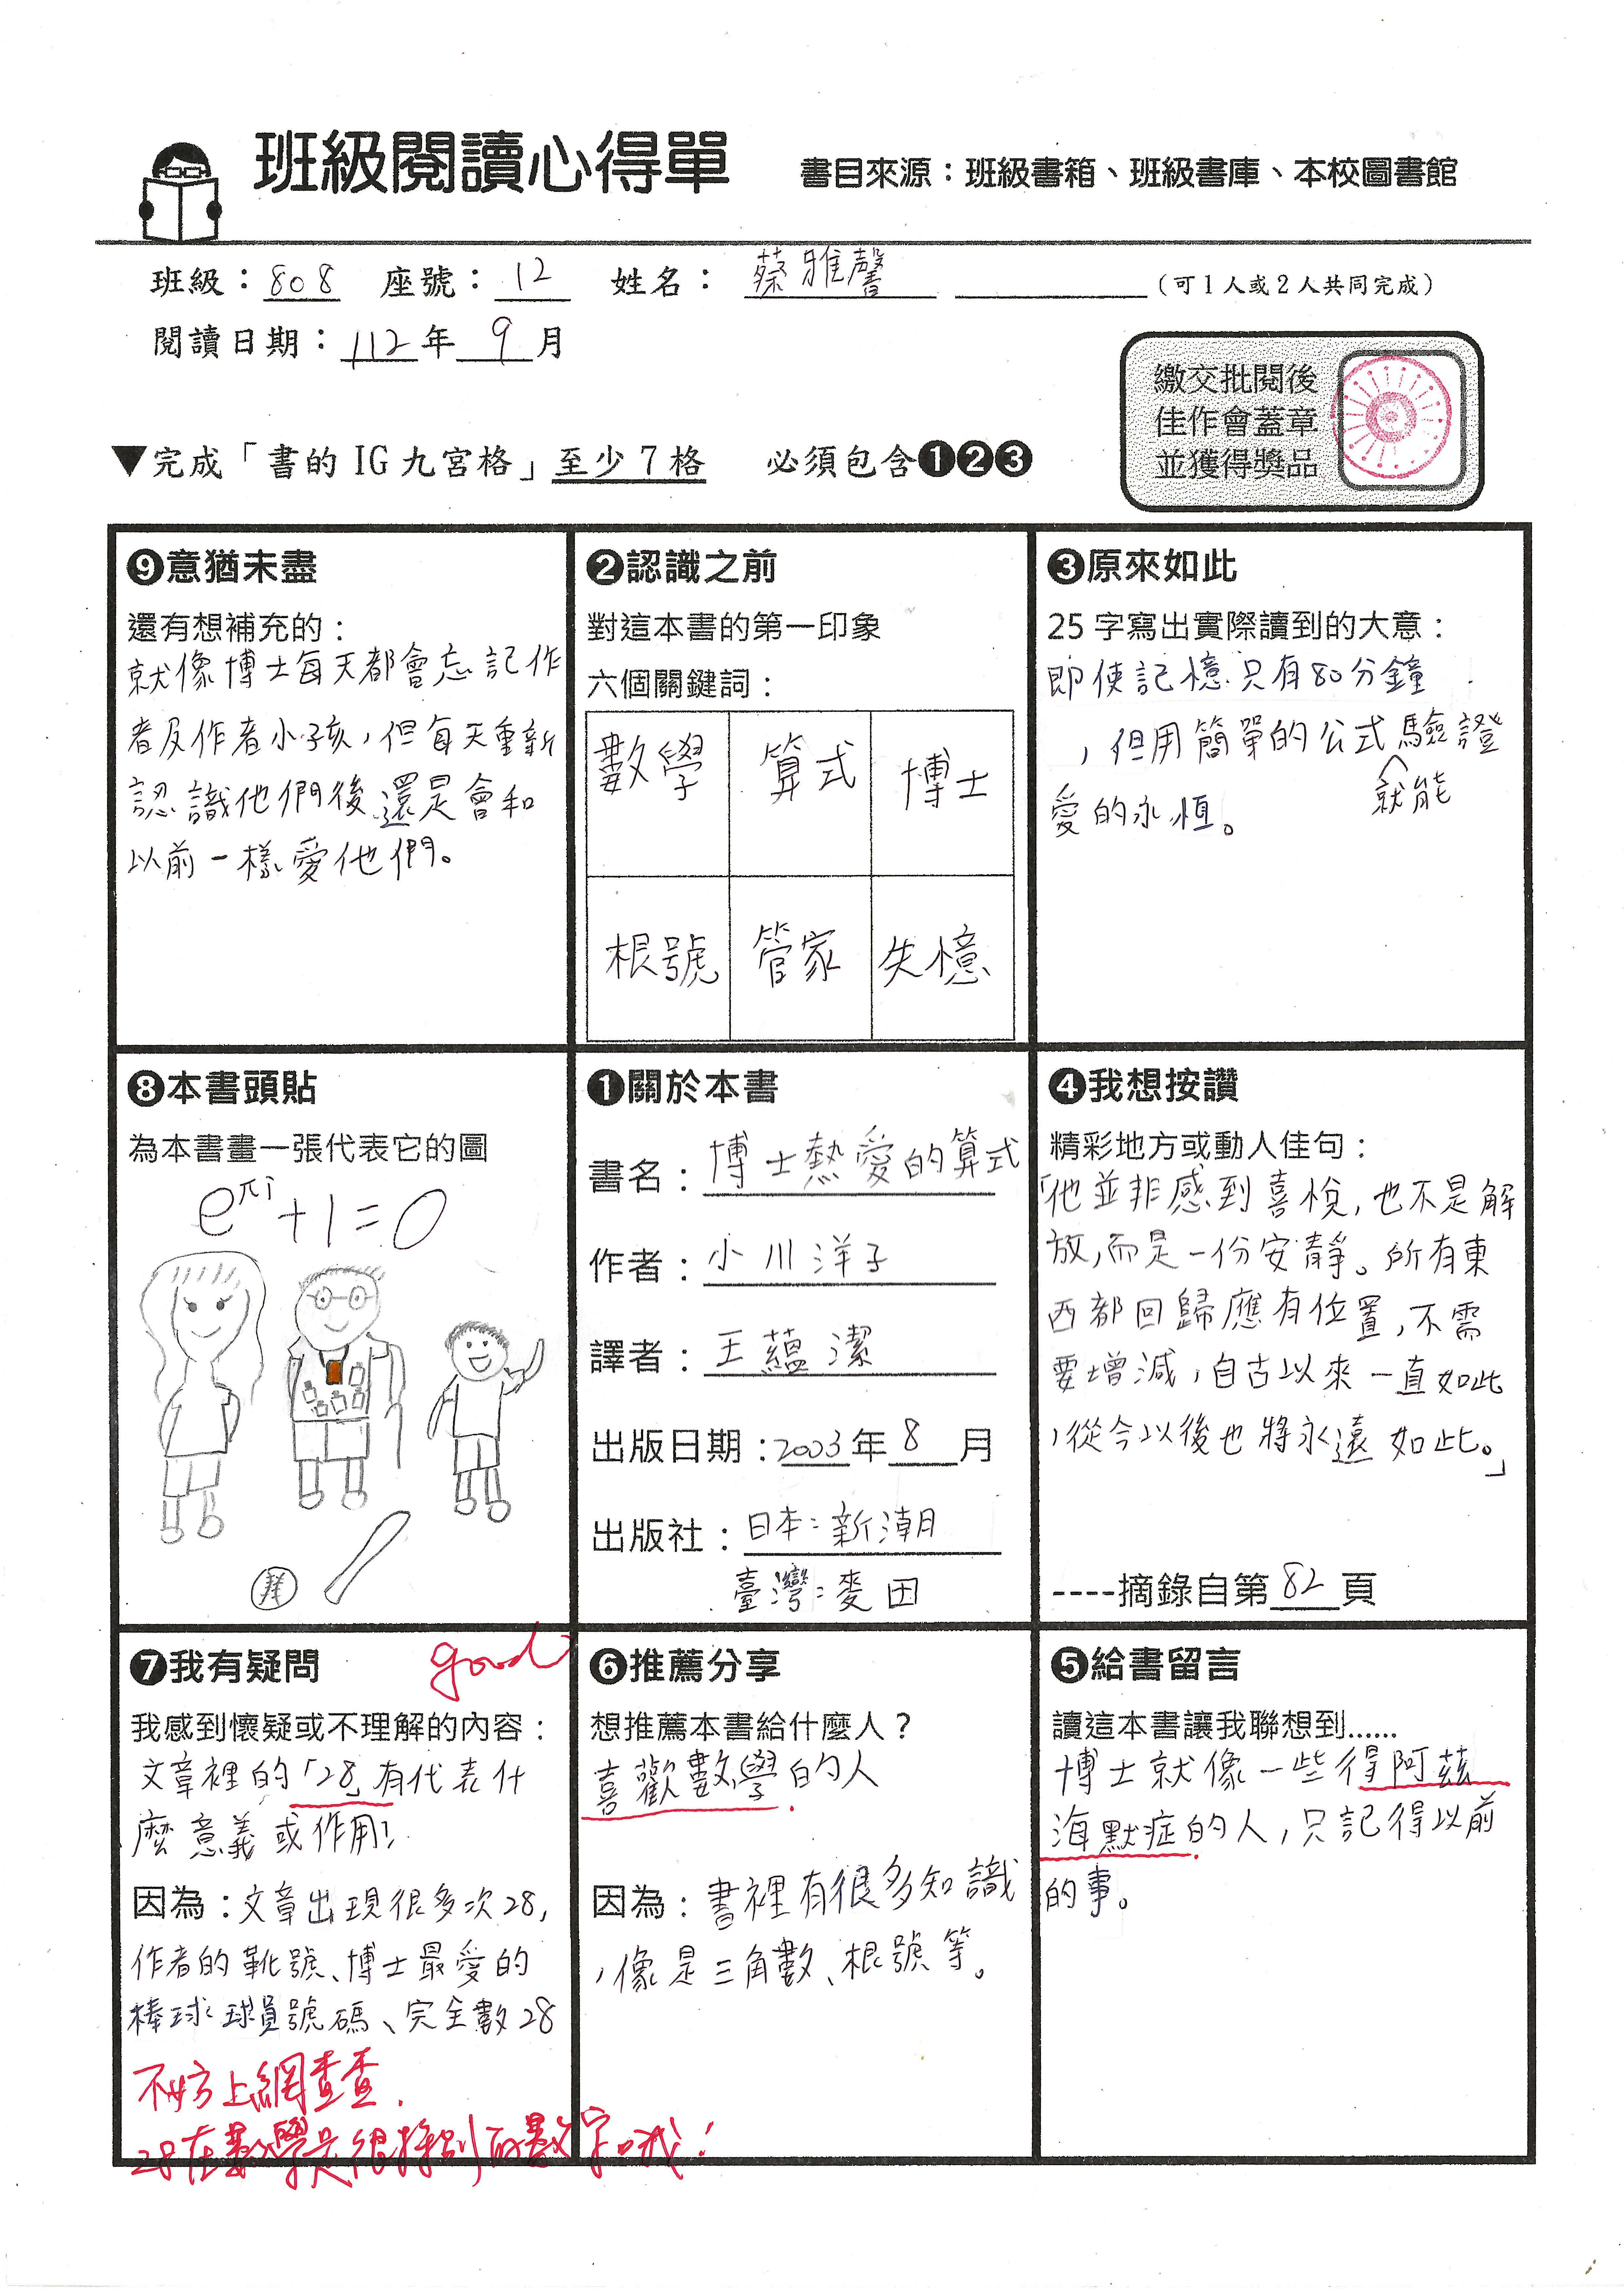 班級閱讀心得單 書目來源：班級書箱、班級書庫、本校圖書館
班級：808 座號：12 姓名：蔡雅馨 （可1人或2人共同完成）
閱讀日期：112年9月
繳交批閱後
佳作會蓋章
並獲得獎品
▼完成「書的IG九宮格」至少7格 必須包含❶❷❸
❾意猶未盡
還有想補充的：
就像博士每天都會忘記作
者及作者小孩，但每天重新
認識他們後還是會和
以前一樣愛他們。
❷認識之前
對這本書的第一印象
六個關鍵詞：
數學 算式 博士
根號 管家 失憶
❸原來如此
25字寫出實際讀到的大意：
即使記憶只有80分鐘
，但用簡單的公式驗證
就能
愛的永恆。
❽本書頭貼
為本書畫一張代表它的圖
e^πi+1=0
❶關於本書
書名：博士熱愛的算式
作者：小川洋子
譯者：王蘊潔
出版日期：2003年8月
出版社：日本：新潮
臺灣：麥田
❹我想按讚
精彩地方或動人佳句：
「他並非感到喜悅，也不是解
放，而是一份安靜。所有東
西都回歸應有位置，不需
要增減，自古以來一直如此
，從今以後也將永遠如此。」
----摘錄自第82頁
❼我有疑問
good
我感到懷疑或不理解的內容：
文章裡的「28」有代表什
麼意義或作用?
因為：文章出現很多次28，
作者的靴號、博士最愛的
棒球球員號碼、完全數28
不妨上網查查.
28在數學是很特別的數字哦！
❻推薦分享
想推薦本書給什麼人？
喜歡數學的人
因為：書裡有很多知識
，像是三角數、根號等。
❺給書留言
讀這本書讓我聯想到......
博士就像一些得阿茲
海默症的人，只記得以前
的事。